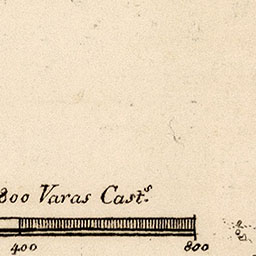 800 Varas Cast.s
400 800